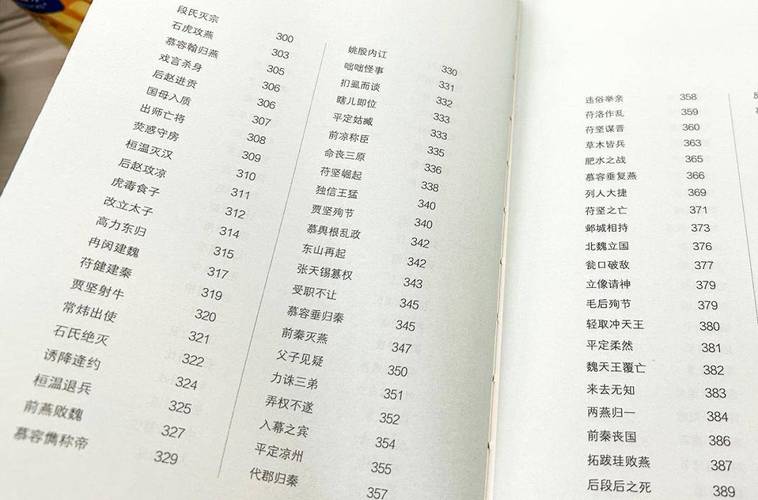 段氏灭宗 300
石虎攻燕 303
慕容翰归燕 305
戏言杀身 306
后赵进贡 306
国母入质 307
出师亡将 308
荧惑守房 309
桓温灭汉 310
后赵攻凉 311
虎毒食子 312
改立太子 314
高力东归 315
冉闵建魏 317
苻健建秦 319
贾坚射牛 320
常炜出使 321
石氏绝灭 322
诱降逢约 324
桓温退兵 325
前燕败魏 327
慕容儁称帝 329
姚殷内讧 330
咄咄怪事 331
扪虱而谈 332
瞎儿即位 333
平定姑臧 333
前凉称臣 335
命丧三原 336
苻坚崛起 338
独信王猛 340
贾坚殉节 340
慕舆根乱政 342
东山再起 342
张天锡篡权 343
受职不让 345
慕容垂归秦 345
前秦灭燕 347
父子见疑 350
力诛三弟 351
弄权不遂 352
入幕之宾 354
平定凉州 355
代郡归秦 357
违俗举亲 358
苻洛作乱 359
苻坚谋晋 360
草木皆兵 363
肥水之战 365
慕容垂复燕 366
列人大捷 369
苻坚之亡 371
邺城相持 373
北魏立国 376
瓮口破敌 377
立像请神 379
毛后殉节 379
轻取冲天王 380
平定柔然 381
魏天王覆亡 382
来去无知 383
两燕归一 384
前秦丧国 386
拓跋珪败燕 387
后段后之死 389